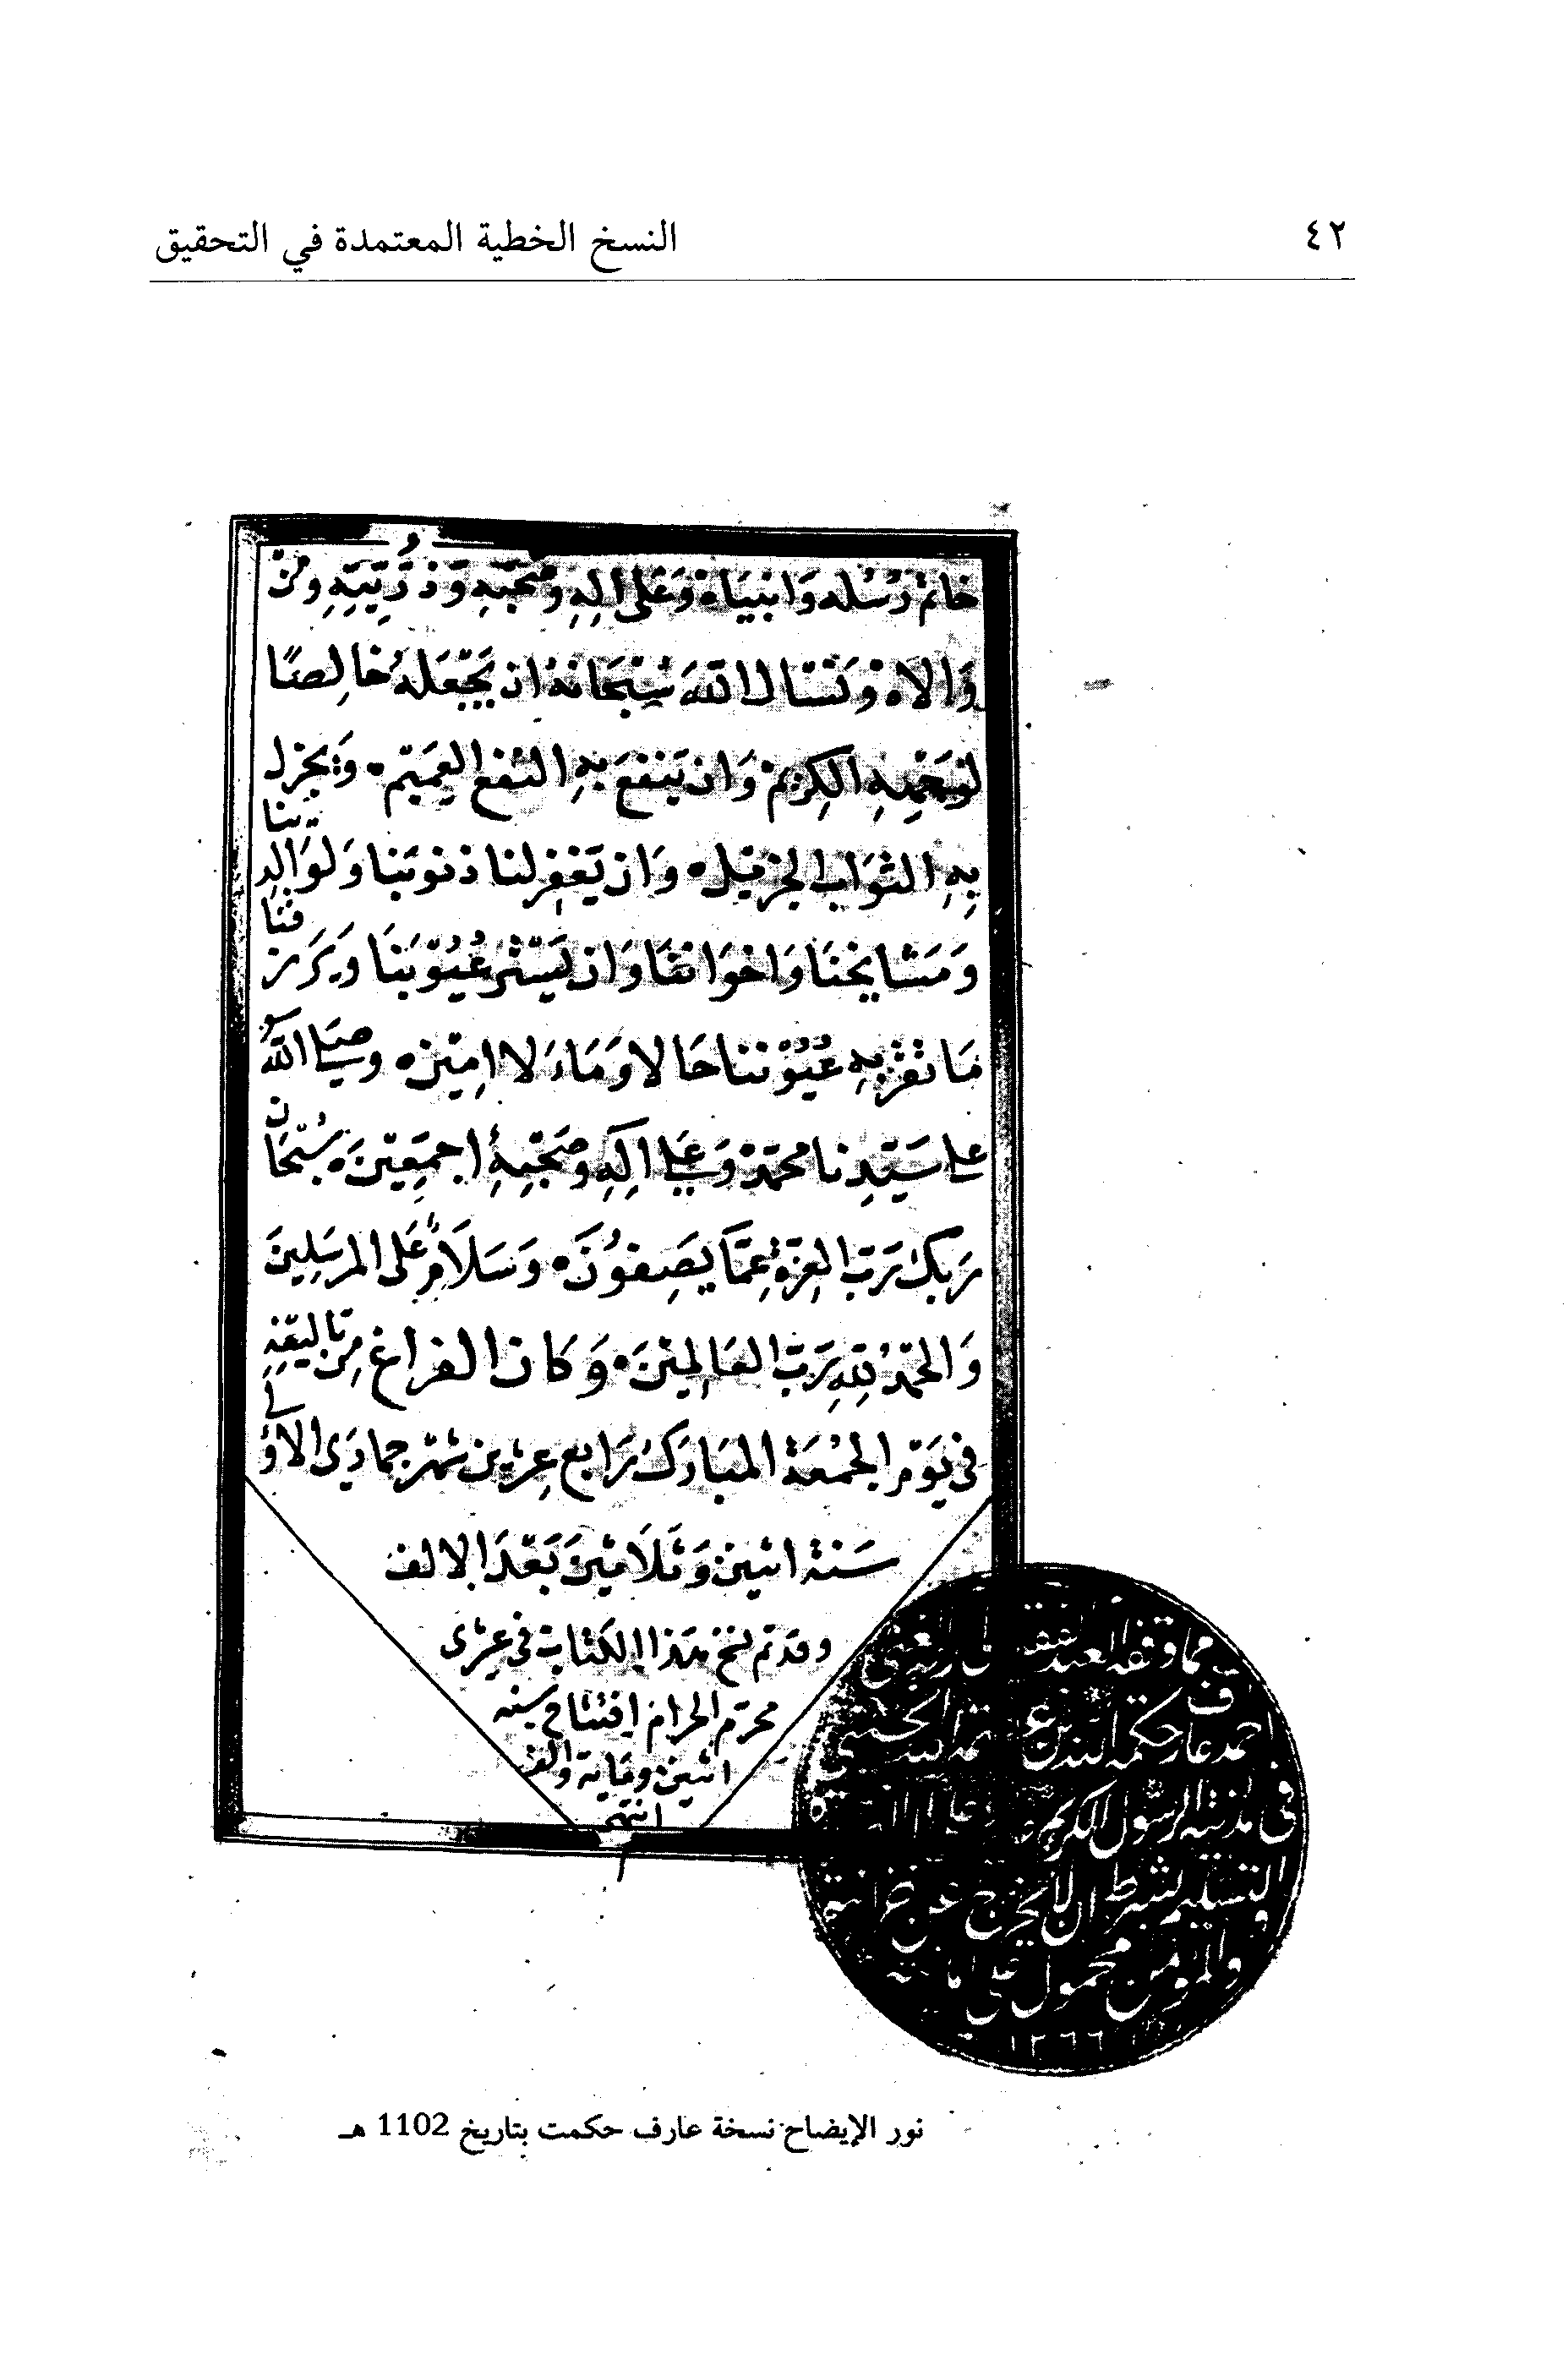 ٤٢
النسخ الخطية المعتمدة في التحقيق
خاتم رسله وانبياه وعلى اله وصحبه وذريته ومن
والاه ونسال الله سبحانه ان يجعله خالصا
لوجهه الكريم وان ينفع به النفع العميم ويجزل
به الثواب الجزيل وان يغفر لنا ذنوبنا ولوالدينا
ومشايخنا واخواننا وان يستر عيوبنا ويرزقنا
ما تقر به عيوننا حالا وماءلا امين وصلى الله
على سيدنا محمد وعلى اله وصحبه اجمعين سبحان
ربك رب العزة عما يصفون وسلام على المرسلين
والحمد لله رب العالمين وكان الفراغ من تاليفه
في يوم الجمعة المبارك رابع عشرين شهر جمادى الاولى
سنة اثنين وثلاثين بعد الالف
وقد تم نسخ هذا الكتاب في عشرى
محرم الحرام افتتاح سنه
اثنين وماية والف
انتهى
مما وقفه العبد الفقير الى ربه الغني
احمد عارف حكمة الله بن عصمة الله الحسيني
في مدينة الرسول الكريم عليه وعلى اله الصلاة
والتسليم بشرط ان لا يخرج عن خزانته
والمؤمن محمول على امانته
١٢٦٦
نور الإيضاح نسخة عارف حكمت بتاريخ 1102 هـ